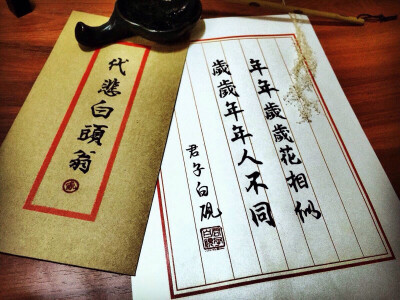 代悲白頭翁
年年歲歲花相似
歲歲年年人不同
君子白硯